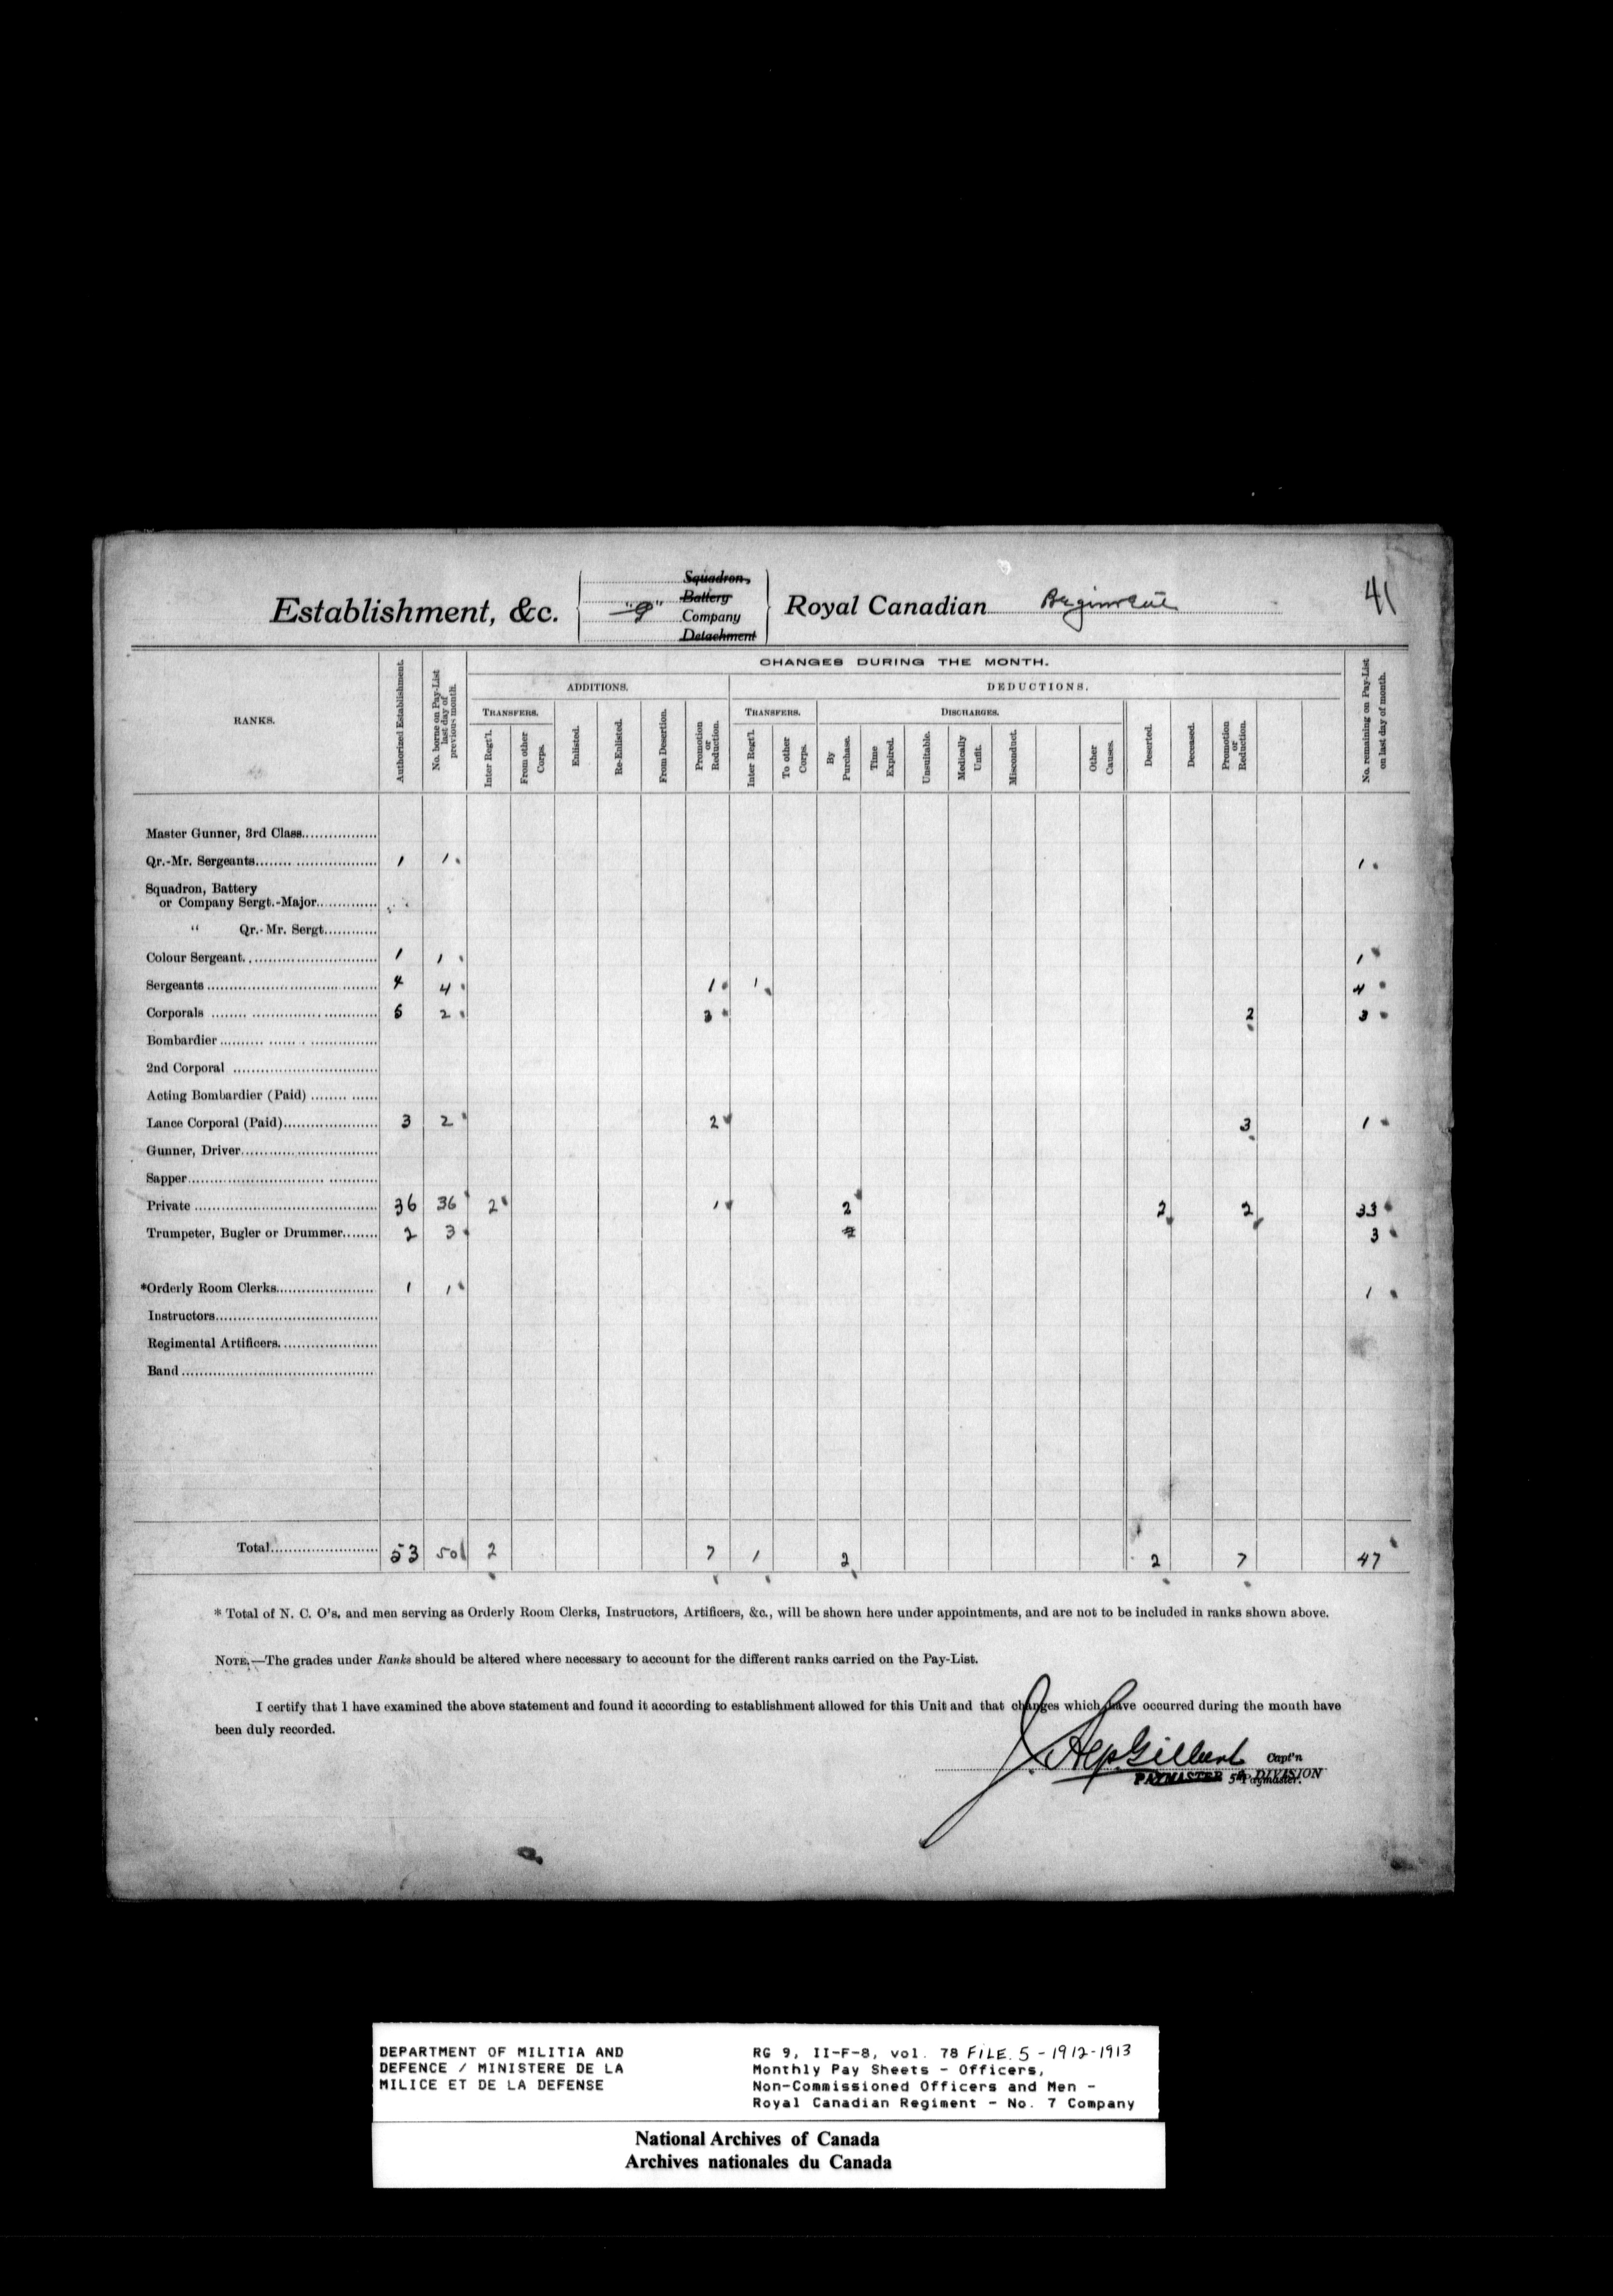 41
Squadron,
Battery
Establishment, &c. "9" Company Royal Canadian Regiment
Detachment
CHANGES DURING THE MONTH.
ADDITIONS. DEDUCTIONS.
RANKS. Authorized Establishment. No. borne on Pay-List last day of previous month. TRANSFERS. TRANSFERS. DISCHARGES. No. remaining on Pay-List on last day of month.
Inter Regt'l. From other Corps. Enlisted. Re-Enlisted. From Desertion. Promotion or Reduction. Inter Regt'l. To other Corps. By Purchase. Time Expired. Unsuitable. Medically Unfit. Misconduct. Other Causes. Deserted. Deceased. Promotion or Reduction.
Master Gunner, 3rd Class
Qr.-Mr. Sergeants 1 1 1
Squadron, Battery
or Company Sergt.-Major
" Qr.-Mr. Sergt
Colour Sergeant 1 1 1
Sergeants 4 4 1 1 4
Corporals 5 2 3 2 3
Bombardier
2nd Corporal
Acting Bombardier (Paid)
Lance Corporal (Paid) 3 2 2 3 1
Gunner, Driver
Sapper
Private 36 36 2 1 2 2 2 33
Trumpeter, Bugler or Drummer 2 3 2 3
*Orderly Room Clerks 1 1 1
Instructors
Regimental Artificers
Band
Total 53 50 2 7 1 2 2 7 47
* Total of N. C. O's, and men serving as Orderly Room Clerks, Instructors, Artificers, &c., will be shown here under appointments, and are not to be included in ranks shown above.
NOTE.—The grades under Ranks should be altered where necessary to account for the different ranks carried on the Pay-List.
I certify that I have examined the above statement and found it according to establishment allowed for this Unit and that changes which have occurred during the month have
been duly recorded.
Gilbert Capt'n
PAYMASTER 5th DIVISION
Paymaster.
DEPARTMENT OF MILITIA AND
DEFENCE / MINISTERE DE LA
MILICE ET DE LA DEFENSE
RG 9, II-F-8, vol. 78 FILE. 5 - 1912-1913
Monthly Pay Sheets - Officers,
Non-Commissioned Officers and Men -
Royal Canadian Regiment - No. 7 Company
National Archives of Canada
Archives nationales du Canada